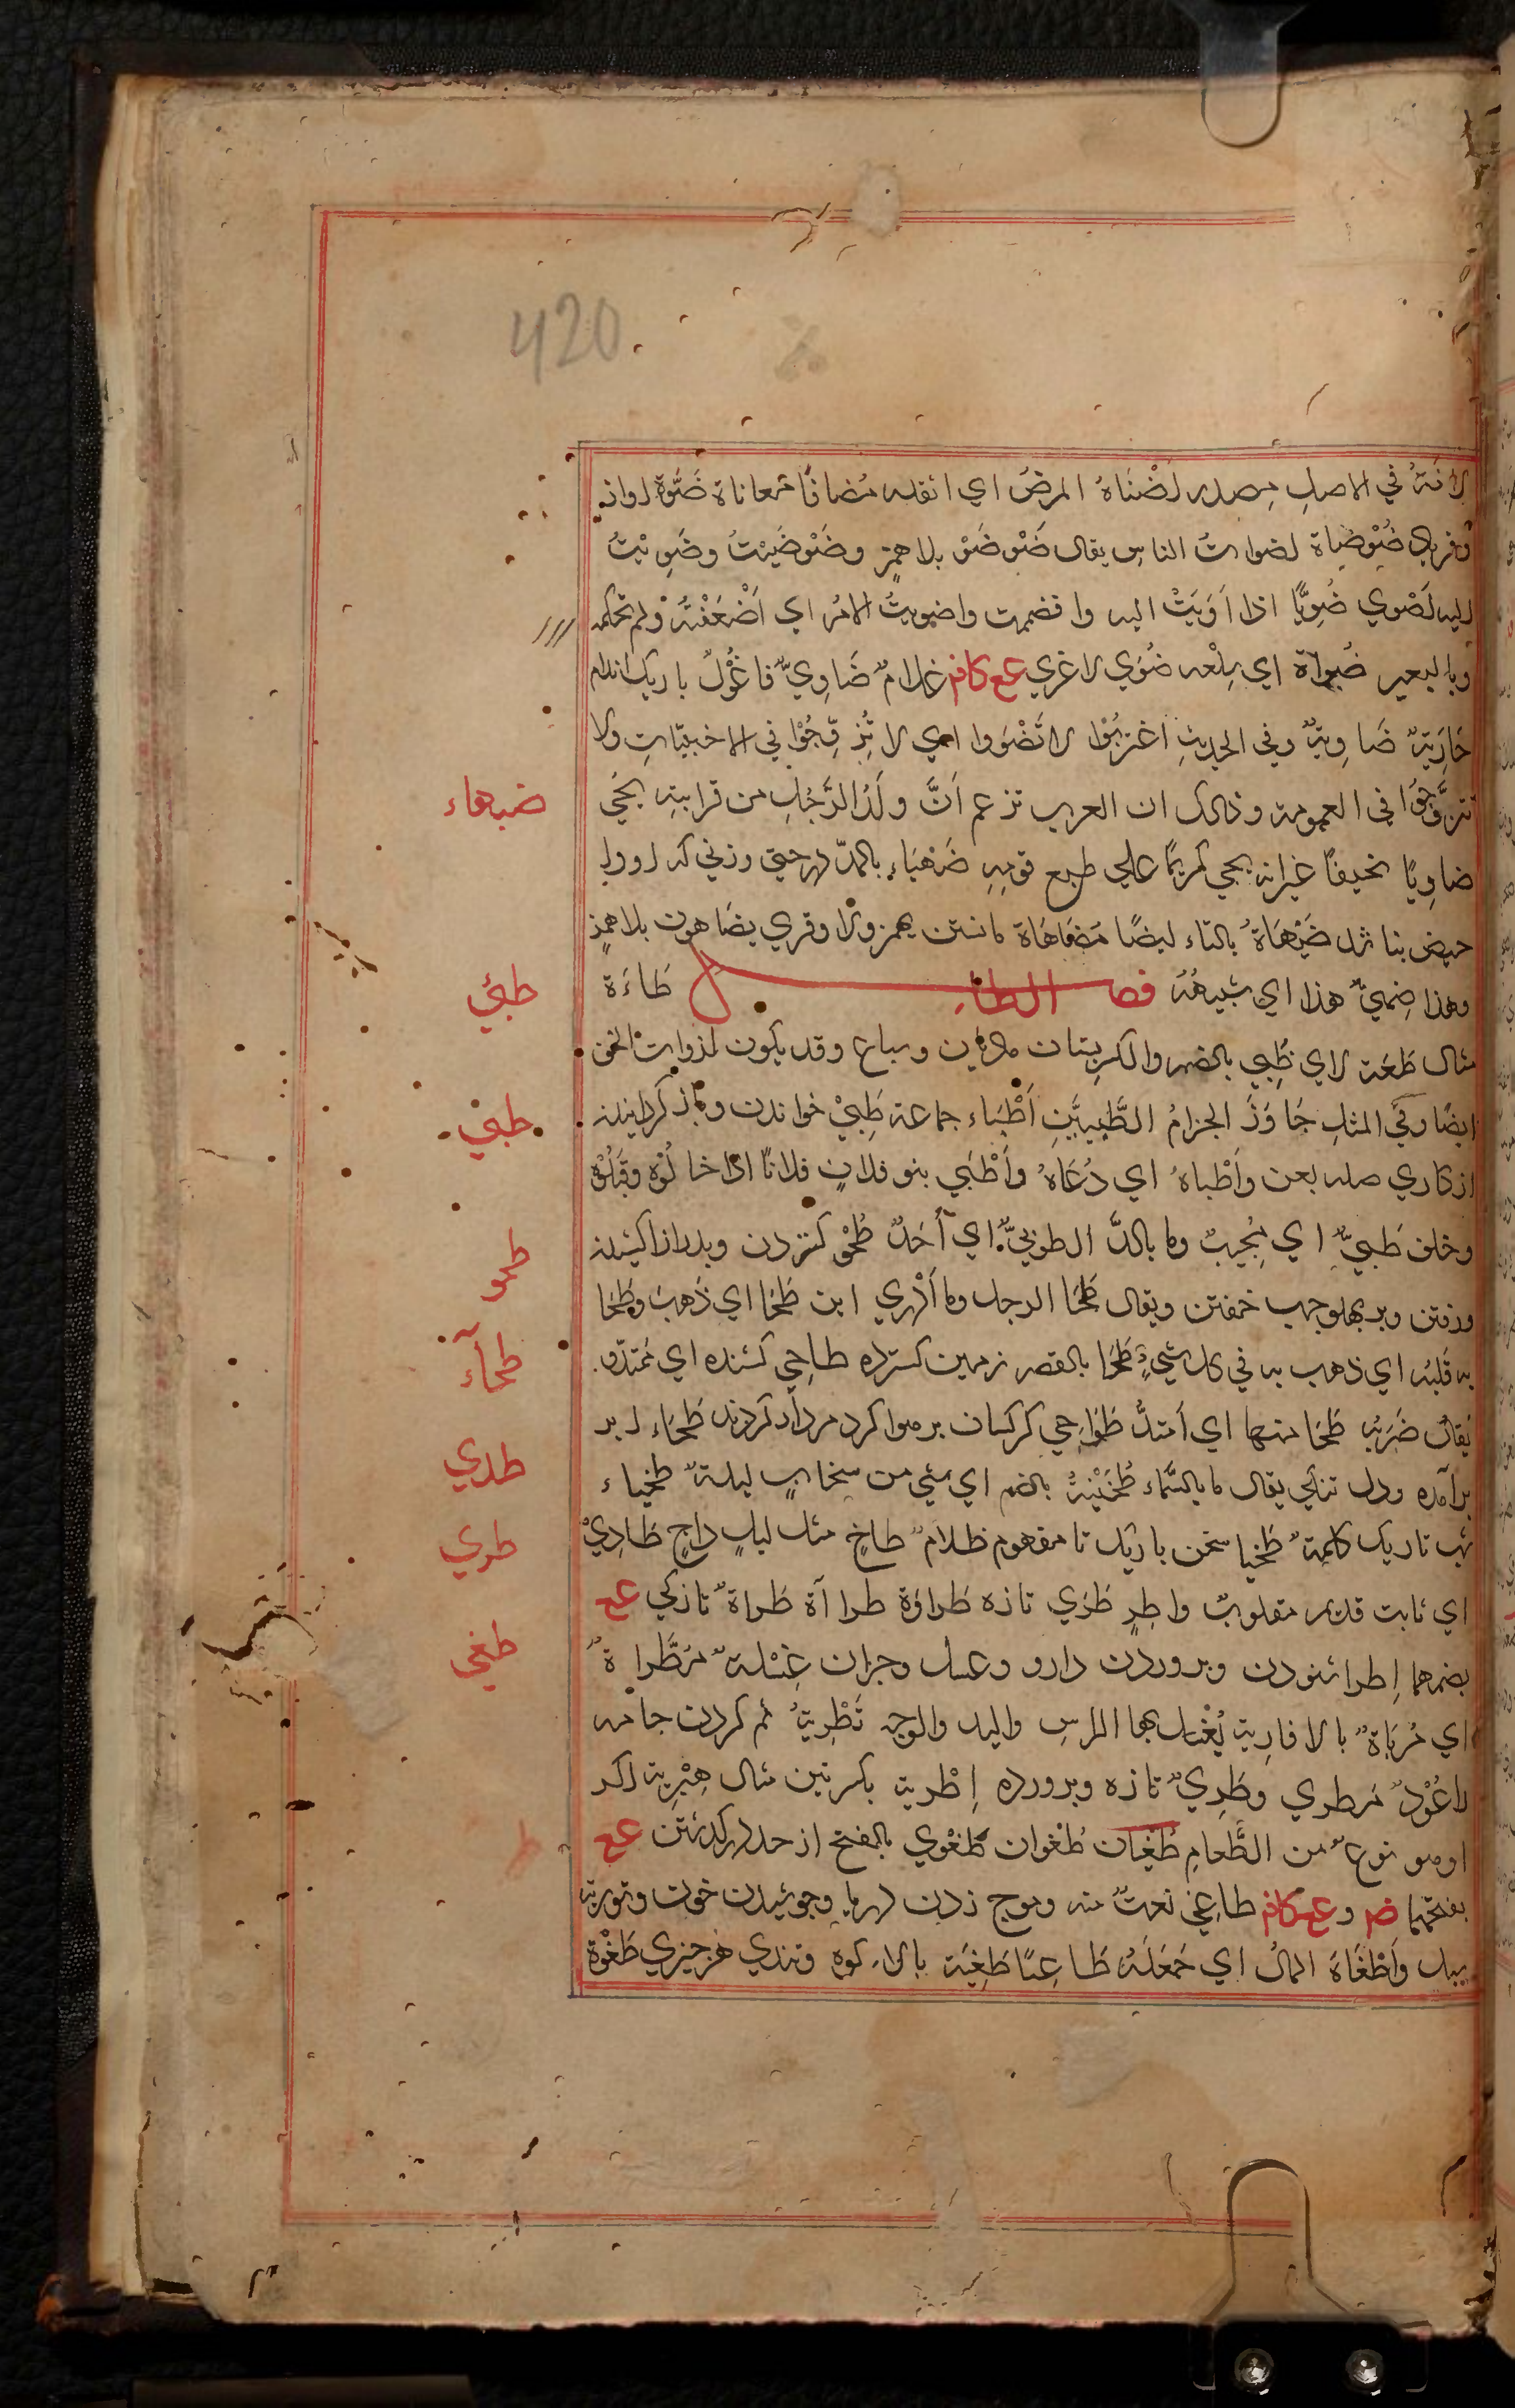 420
لانه في الاصل مصدر اضناه المرض اي اثقله مضاناً معاناة ضوة اواز
وفرياد ضوضاة اصوات الناس يقال ضوضو بلا همز وضوضيت وضويت
اليه اضوي ضوياً اذا اويت اليه وانضممت واضويت الامر اي اضعفته ولم تحكمه
وبالبعير ضواة اي سلعه ضوي لاغري عع كافم غلام ضاوي فاعول باريك اندام
جارية ضاوية وفي الحديث اغتربوا لا تضووا اي لا تزوجوا في الاجنبيات ولا
تتزوجوا في العمومة وذلك ان العرب تزعم ان ولد الرجل من قرابته يجي
ضاوياً نحيفاً غير انه يجي كريماً علي طبع قومه ضهياء بالمد درحتي وزني كه اورا
حيض بناشد ضيهاة بالتاء ايضاً مضاهاة مانستن يهمز ولا وقري يضاهون بلا همز
وهذا ضهي هذا اي شبيهه فصل الطاء طاءة
مثال طعة لاي طبي بالضم والكر بستان ماديين وسباع وقد يكون لذوات الخف
ايضاً وفي المثل جاوز الحزام الطبيين اطباء جماعة طبي خواندن وباز كردانيدن
از كاري صله بعن واطباه اي دعاه واطبي بنو فلان فلاناً اذا خالوه وقبلوه
وخلف طبي اي مجيب وما بالد الطوبي اي احد طحو كستردن وبدرازا كشيدن
ورفتن وبر بهلو جهب خفتن ويقال طحا الرجل وما ادري اين طحا اي ذهب وطحا
به قلبه اي ذهب به في كل شيء طحا بالقصر زمين كسترده طاحي كشنده اي ممتد
يقال ضربه طحا منها اي امتد طواحي كركسان بر هوا كرد مردار كردند طحاء ابر
برآمده ودل تنكي يقال ما بالسماء طخية بالضم اي شي من سحاب ليلة طخياء
شب تاريك كلمة طخيا سخن باريك نا مفهوم ظلام طاخ مثل ليل داج طادي
اي ثابت قديم مقلوب واطد طري تازه طراوة طراآة طراة تازكي عع
بضمهما اطرا ستودن وبروردن دارو وعسل وجزان غسلة مطراة
اي مرباة بالافاويه يغسل بها الراس واليد والوجه تطرية نم كردن جامه
لا عود مطري وطري تازه وبرورده اطرية بكسرتين مثال هبرية اكر
اوهو نوع من الطعام طغيان طغوان طغوي بالفتح از حد دركذشتن عع
بفتحهما ضم وعع كافم طاغي نعت منه وموج زدن دريا وجوشيدن خون وتوريه
سيل واطغاه المال اي جعله طاغياً طغية بالاء كوه وتندي هر چيزي طغوة
ضهياء
طبي
طبي
طحو
طحآء
طدي
طري
طغي